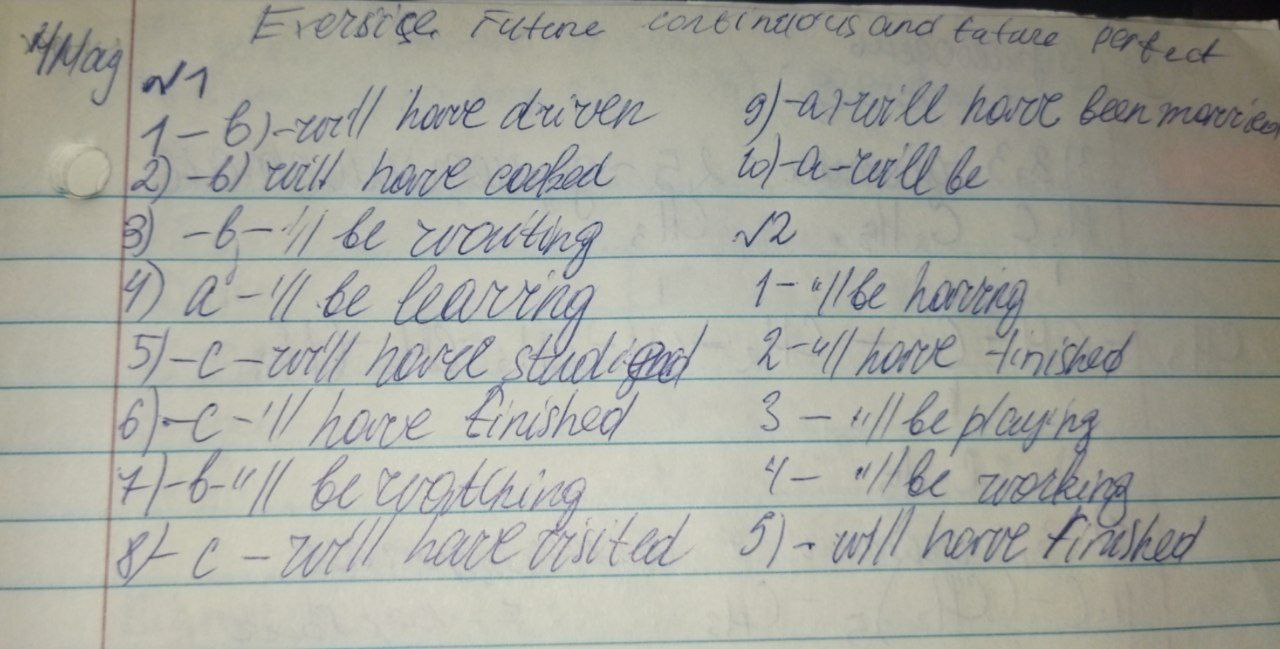 Exersise. Future continuous and future perfect
№1
1 – b) – will have driven
2) – b) will have cooked
3) – b, – 'll be waiting
4) a – 'll be learning
5) – c – will have studied
6) – c – 'll have finished
7) – b – "ll be watching
8) – c – will have visited
9) – a) – will have been married
10) – a – will be
№2
1 – "ll be having
2 – "ll have finished
3 – "ll be playing
4 – "ll be working
5) – will have finished